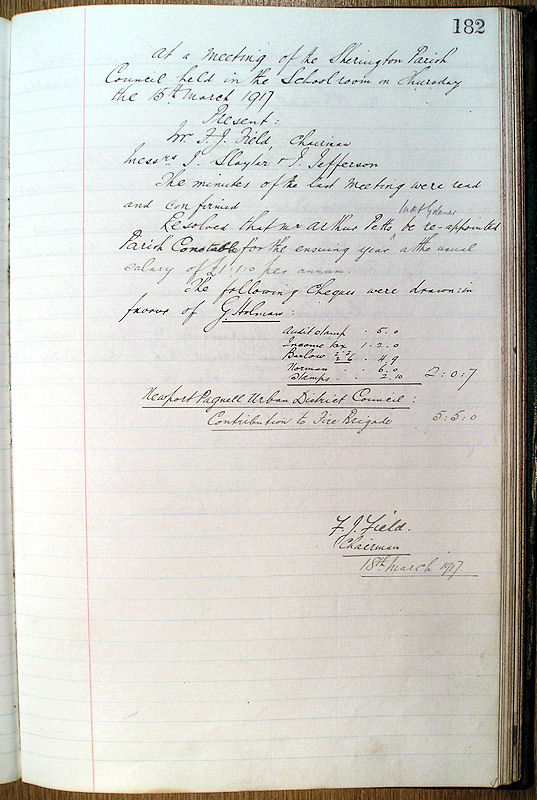 182
At a meeting of the Sherington Parish
Council held in the Schoolroom on Thursday
the 15th March 1917
Present:
Mr. F. J. Field, Chairman
Messrs J. Slayter & J. Jefferson
The minutes of the last meeting were read
and confirmed
Resolved that Mr Arthur Petts be re-appointed
Parish Constable for the ensuing year at the usual
salary of £1:1:0 per annum.
The following Cheques were drawn: in
favour of G Holman:
Audit stamp . 5. 0
Income tax 1. 2. 0
Barlow 2/3 2/6 . 4. 9
Norman . 6. 0
Stamps . . 2. 10 2:0:7
Newport Pagnell Urban District Council:
Contribution to Fire Brigade 5:5:0
F. J. Field.
Chairman
18th March 1917